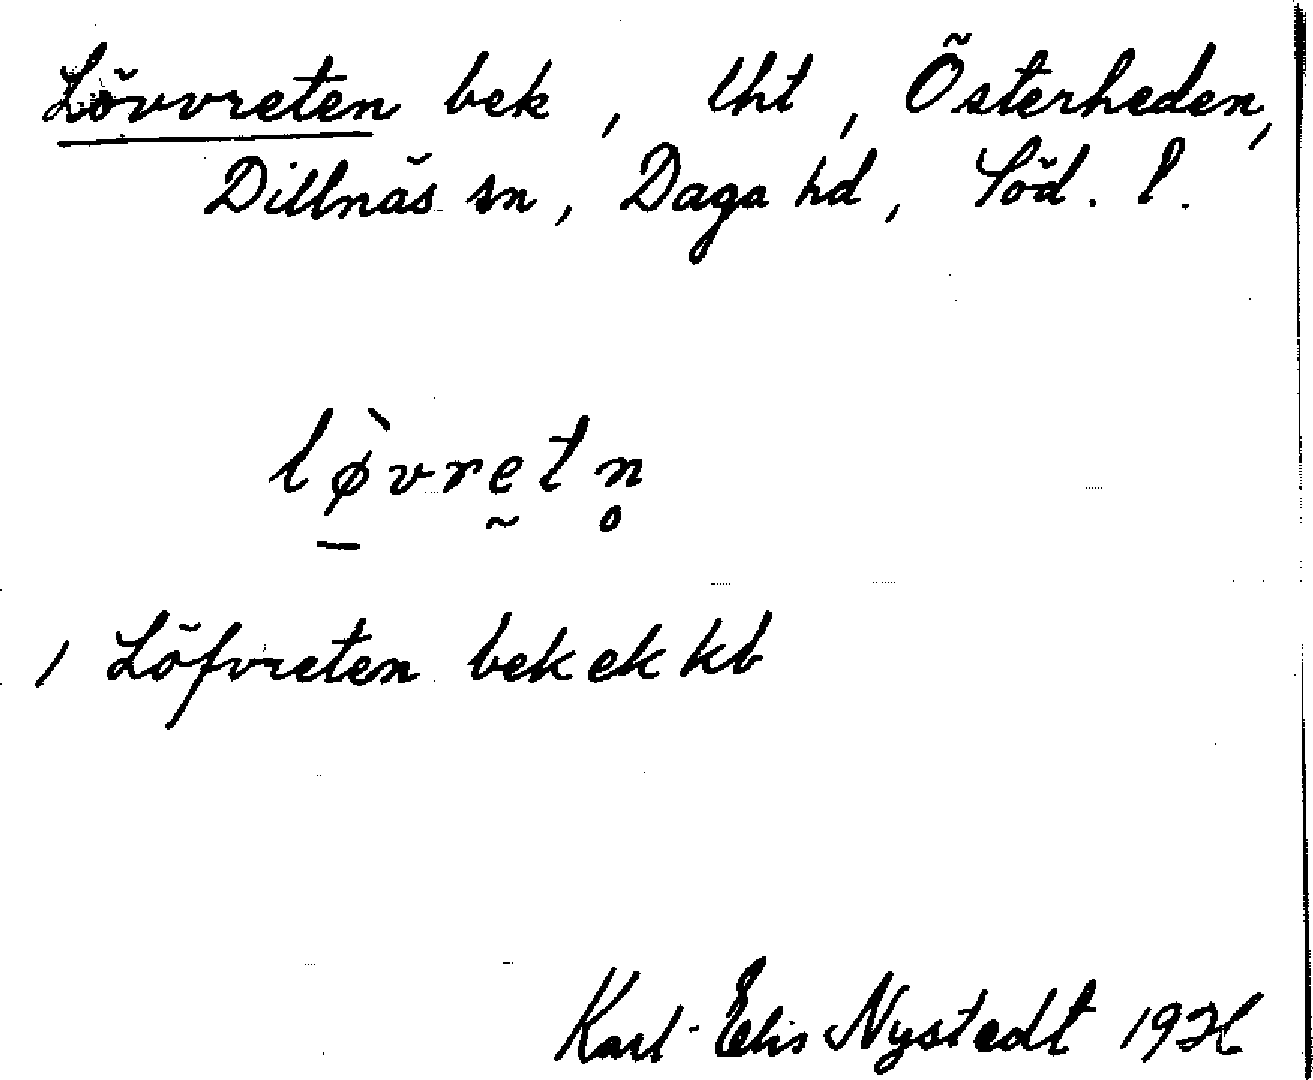 Lövvreten bek, tht, Österheden,
Dillnäs sn, Daga hd, Söd. l.
lø̀vretn̥
1 Löfvreten bek ek kb
Karl-Elis Nystedt